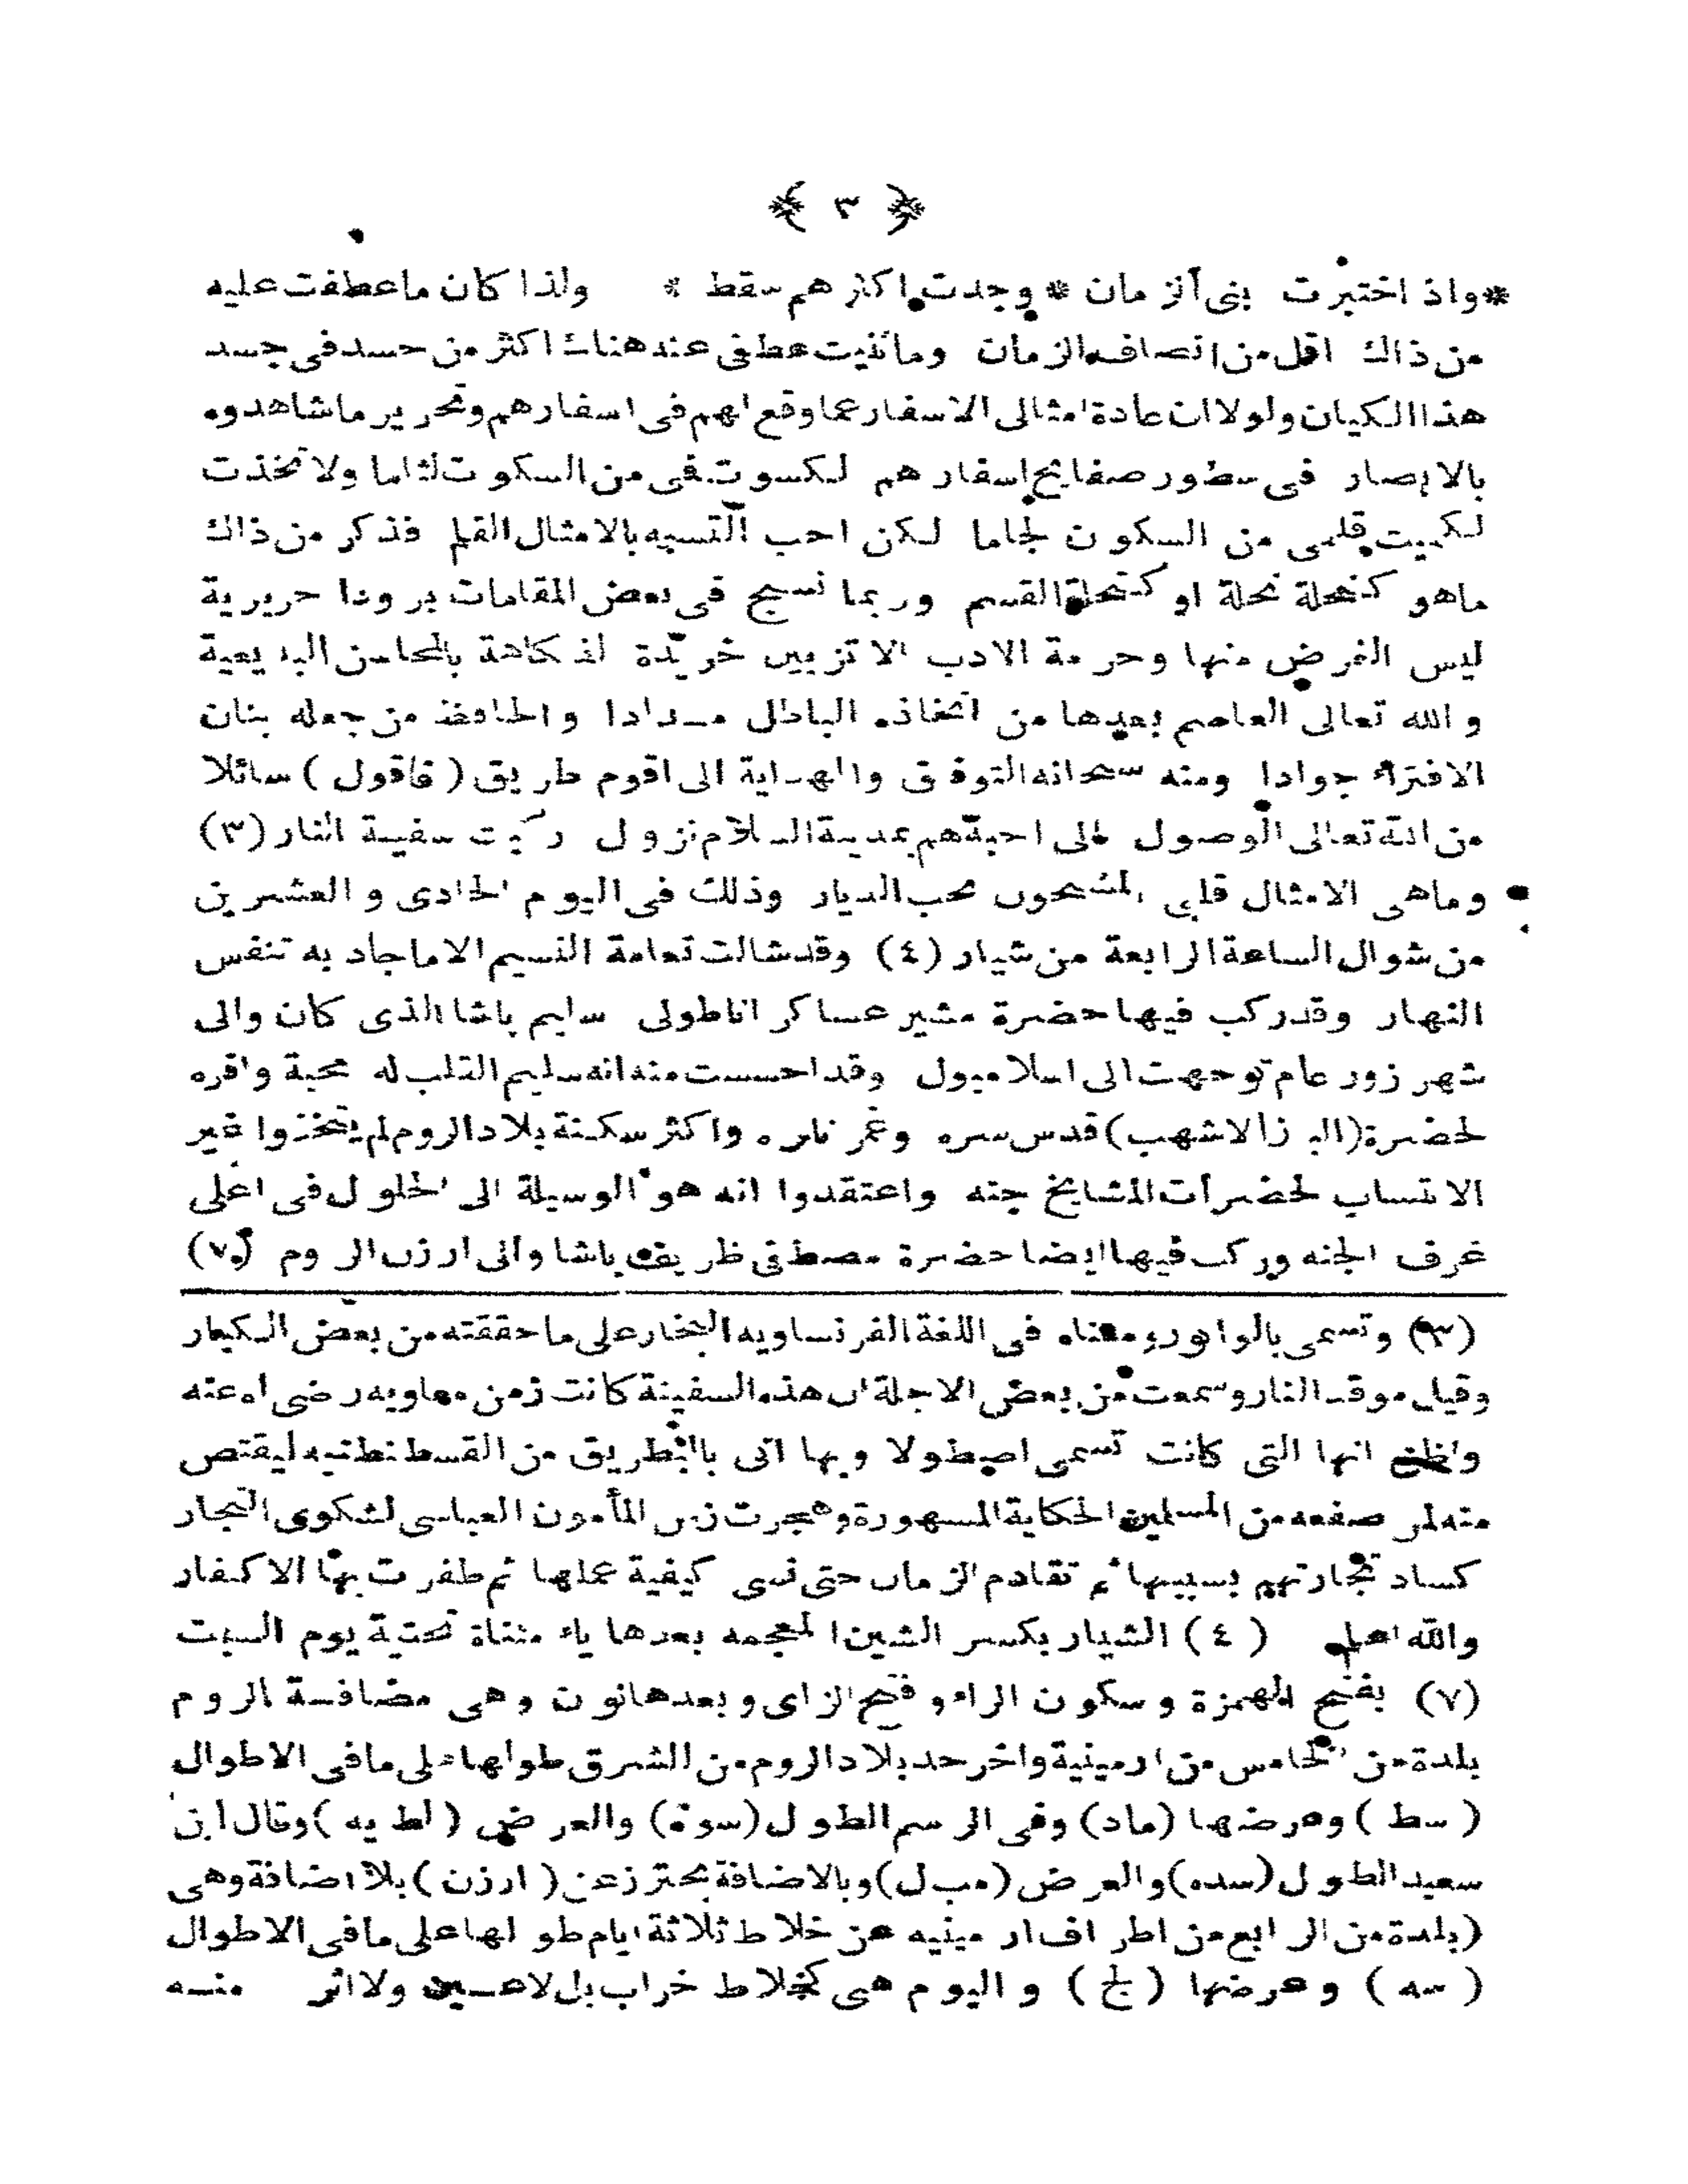 ﴿ ٣ ﴾
*واذ اختبرت بنى الزمان * وجدت اكثرهم سقط * ولذا كان ما عطفت عليه
من ذاك اقل من انصاف الزمان وما ثنيت عطفى عند هناك اكثر من حسد فى جسد
هذا الكيان ولولا ان عادة امثالى الاسفار عما وقع لهم فى اسفارهم وتحرير ما شاهدوه
بالابصار فى سطور صفايح اسفارهم لكسوت فى من السكوت لثاما ولاتخذت
لكميت قلمى من السكون لجاما لكن احب التسيه بالامثال القلم فذكر من ذاك
ما هو كنحلة نحلة او كتحلة القسم وربما نسج فى بعض المقامات برودا حريرية
ليس الغرض منها وحرمة الادب الا تزيين خريدة الفكاهة بالمحاسن البديعية
والله تعالى العاصم بعيدها من اتخاذه الباطل مدادا والحافظ من جعله بنان
الافتراء جوادا ومنه سبحانه التوفيق والهداية الى اقوم طريق (فاقول) سائلا
من الله تعالى الوصول الى احبة هم بمدينة السلام نزول ركبت سفينة النار (٣)
وما هى الامثال قلبى المشحون بحب الديار وذلك فى اليوم الحادى والعشرين
من شوال الساعة الرابعة من شيار (٤) وقد شالت نعامة النسيم الا ما جاد به تنفس
النهار وقد ركب فيها حضرة مشير عساكر اناطولى سليم باشا الذى كان والى
شهر زور عام توجهت الى اسلامبول وقد احسست منه انه سليم القلب له محبة وافره
لحضرة (الباز الاشهب) قدس سره وغمر ناره واكثر سكنة بلاد الروم لم يتخذوا غير
الانتساب لحضرات المشايخ جنه واعتقدوا انه هو الوسيلة الى الحلول فى اعلى
غرف الجنه وركب فيها ايضا حضرة مصطفى ظريف باشا والى ارزن الروم (٧)
(٣) وتسمى بالوابور ومعناه فى اللغة الفرنساويه البخار على ما حققته من بعض الكبار
وقيل موقد النار وسمعت من بعض الاجلة ان هذه السفينة كانت زمن معاويه رضى الله عنه
واظن انها التى كانت تسمى اصطولا وبها اتى بالبطريق من القسطنطنيه ليقتص
منه لمن صفعه من المسلمين الحكاية المسهورة وهجرت زمن المأمون العباسى لشكوى التجار
كساد تجارتهم بسببها ثم تقادم الزمان حتى نسى كيفية عملها ثم ظفرت بها الاكفار
والله اعلم (٤) الشيار بكسر الشين المعجمه بعدها ياء مثناة تحتية يوم السبت
(٧) بفتح الهمزة وسكون الراء وفتح الزاى وبعدها نون وهى مضافة الروم
بلدة من الخامس من ارمينية واخر حد بلاد الروم من الشرق طولها على ما فى الاطوال
(سط) وعرضها (ماد) وفى الرسم الطول (سوة) والعرض (لط يه) وقال ابن
سعيد الطول (سده) والعرض (مب ل) وبالاضافة يحترز عن (ارزن) بلا اضافة وهى
(بلدة من الرابع من اطراف ارمينيه عن خلاط ثلاثة ايام طولها على ما فى الاطوال
(سه) وعرضها (لح) واليوم هى كخلاط خراب بل لا عين ولا اثر منه